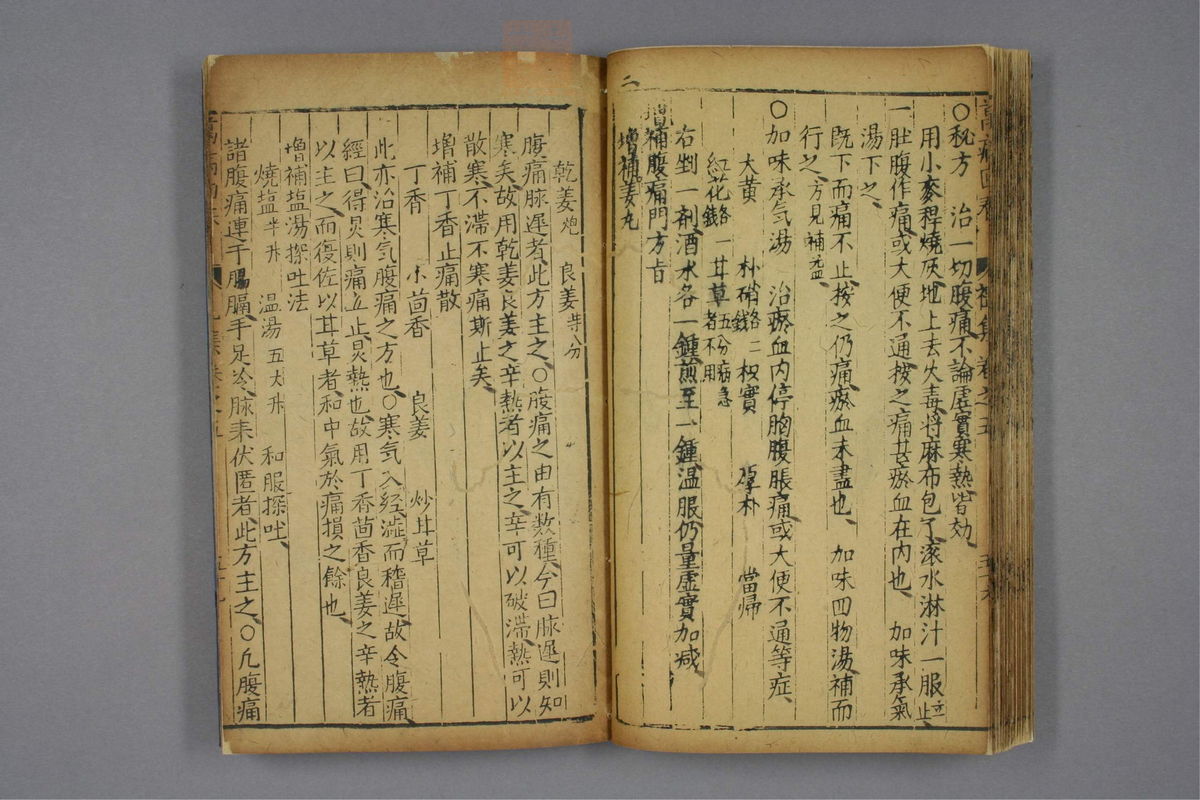 二
〇秘方　治一切腹痛不論虛實寒熱皆効
用小麥稈燒灰地上去火毒將麻布包了滾水淋汁一服立止
一肚腹作痛或大便不通按之痛甚瘀血在內也　加味承氣
湯下之
既下而痛不止按之仍痛瘀血未盡也　加味四物湯補而
行之方見補益
〇加味承气湯　治瘀血內停胸腹脹痛或大便不通等症
大黃　朴硝各二錢　枳實　厚朴　當帰
紅花各一錢　甘草五分病急者不用
右剉一剤酒水各一鍾煎至一鍾溫服仍量虛實加减
增補腹痛門方旨
增補姜丸
乾姜炮　良姜等分
腹痛脉遲者此方主之〇腹痛之由有数種今曰脉遲則知
寒矣故用乾姜良姜之辛熱者以主之辛可以破滞熱可以
散寒不滞不寒痛斯止矣
增補丁香止痛散
丁香　小茴香　良姜　炒甘草
此亦治寒気腹痛之方也〇寒気入経澁而稽遲故令腹痛
經曰得炅則痛立止炅熱也故用丁香茴香良姜之辛熱者
以主之而復佐以甘草者和中氣於痛損之餘也
增補塩湯探吐法
燒塩半升　温湯五大升　和服探吐
諸腹痛連于胸膈手足冷脉来伏匿者此方主之〇凡腹痛